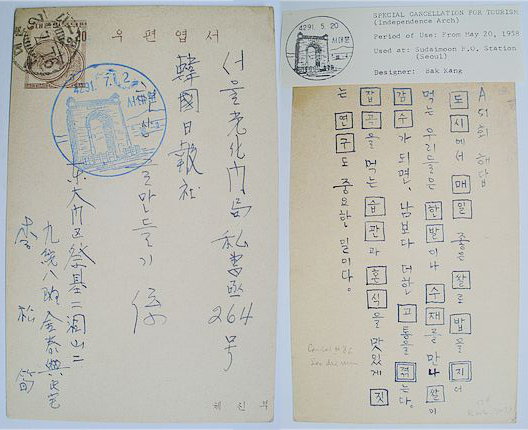 우편엽서
4291. 7. 1.2
서대문
서울 光化門局 私書函 264号
韓國日報社
만들기 係
東大門区 祭基二洞 山二
九統八班 金泰興氏宅
李 松
체신부
4291. 5. 20
서대문
SPECIAL CANCELLATION FOR TOURISM
(Independence Arch)
Period of Use: From May 20, 1958
Used at: Sudaimoon P.O. Station
(Seoul)
Designer: dak Kang
A 51회 해답
도시에서 매일 좋은 쌀로 밥을 지어
먹는 우리들은 한발이나 수재를 만나
감수가 되면, 남보다 더한 고통을 겪는다.
잡곡을 먹는 습관과 혼식을 맛있게 짓
는 연구도 중요한 일이다.